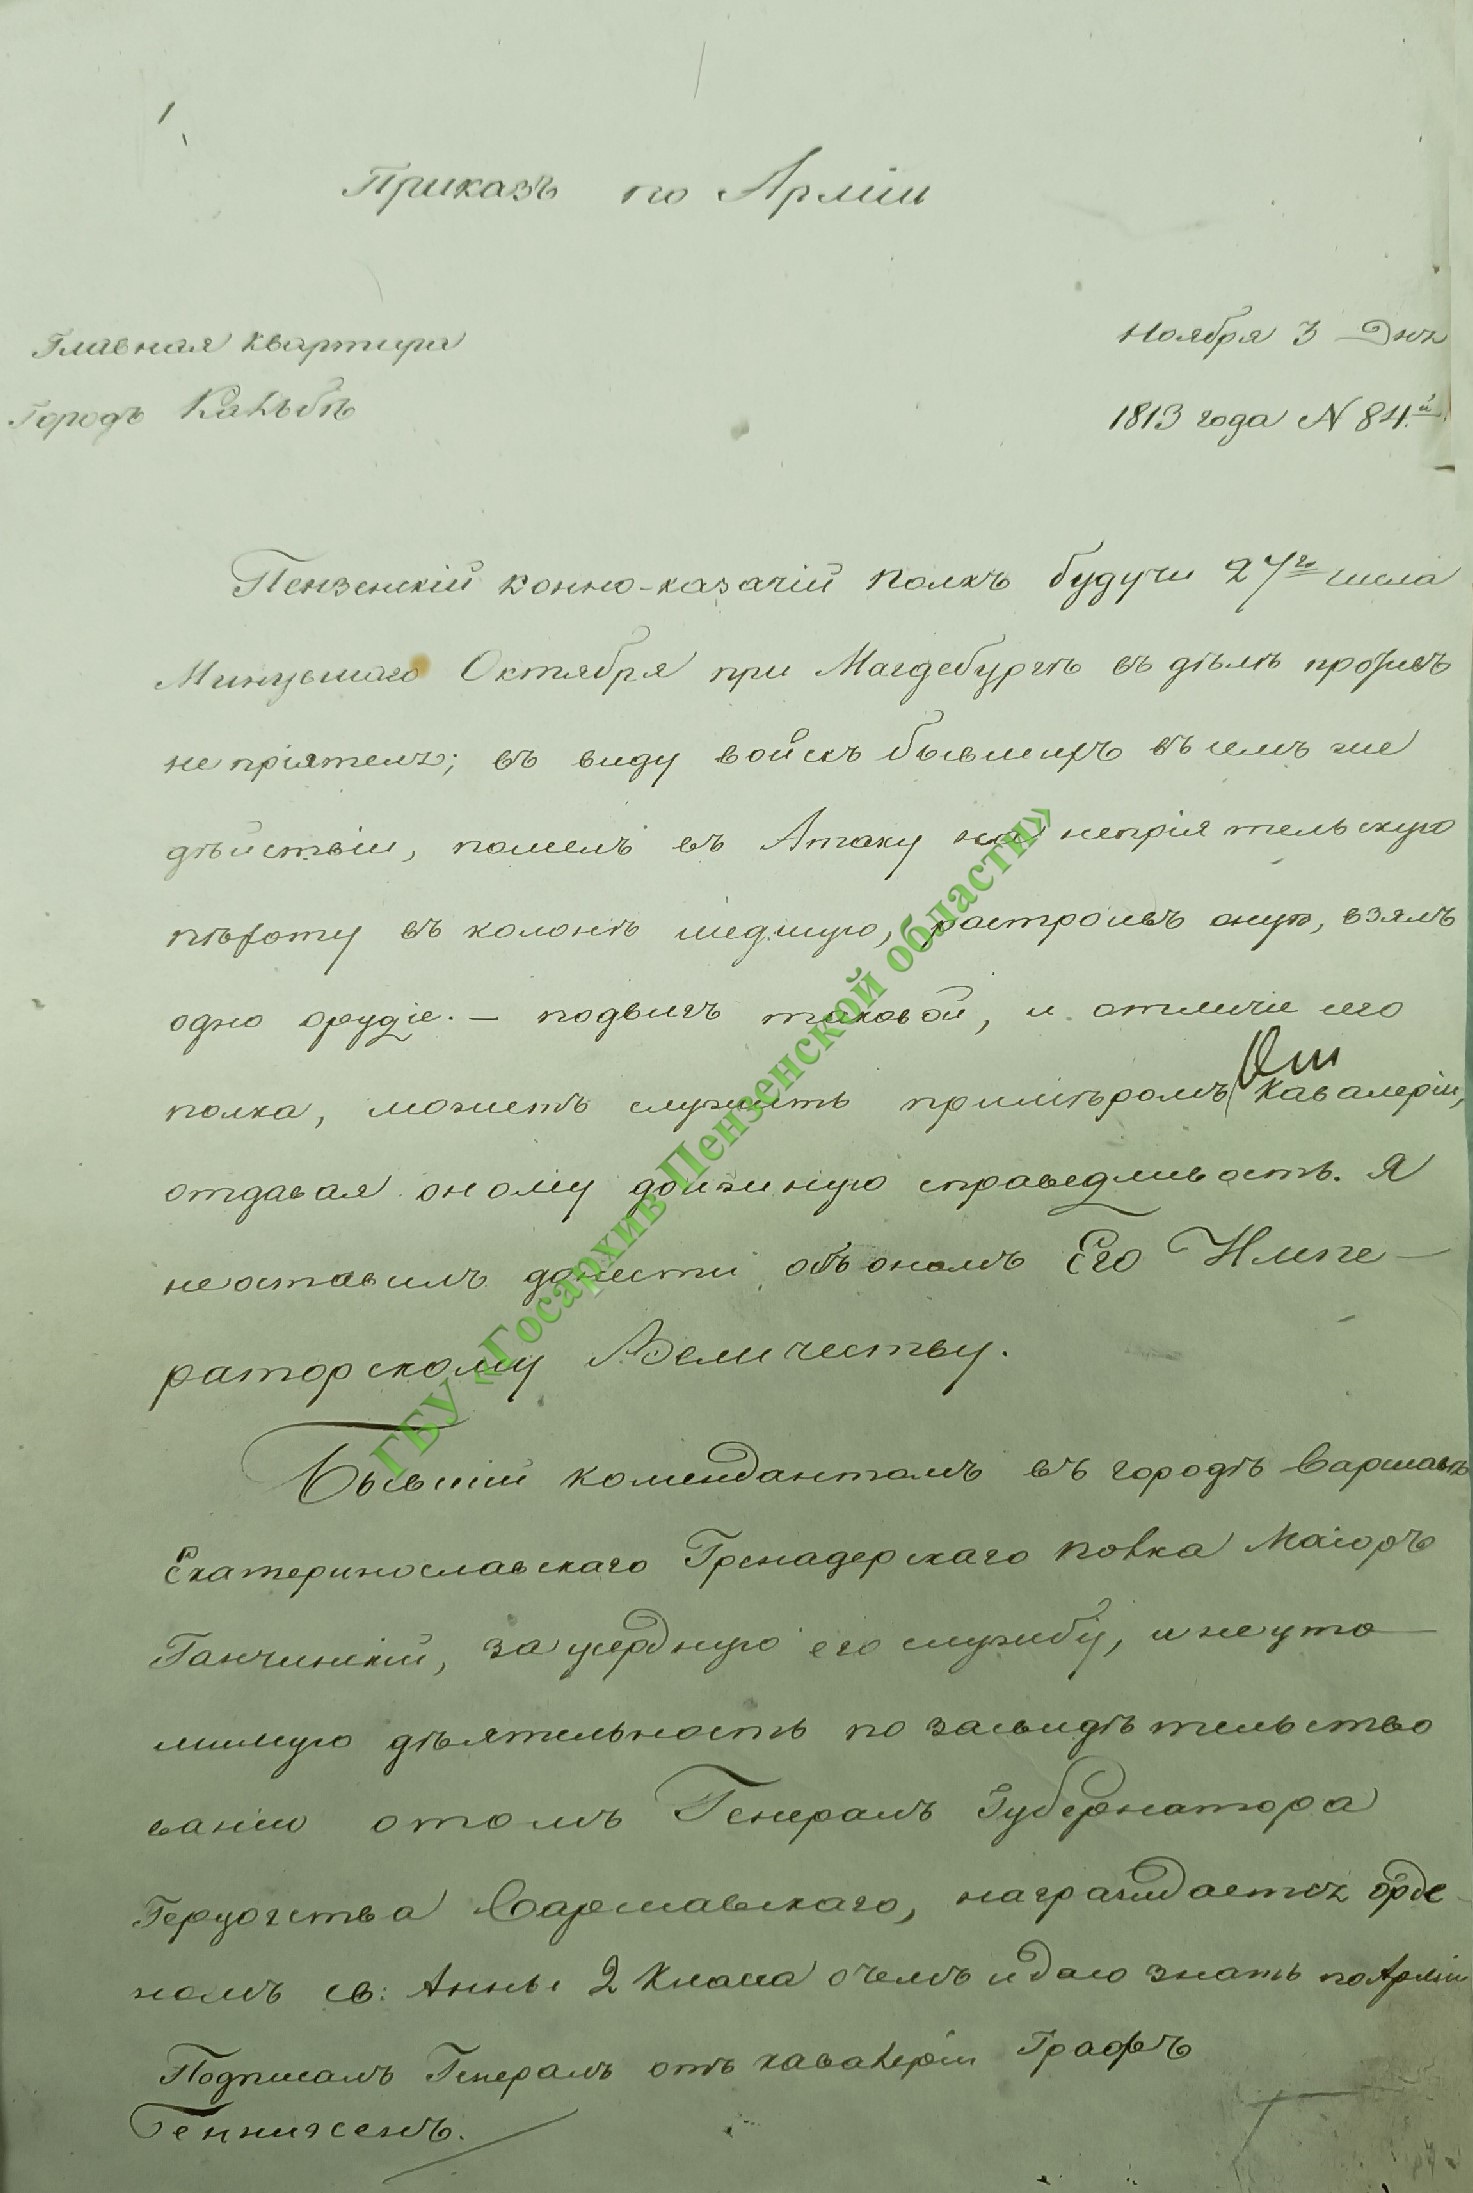 Приказъ по Арміи
Главная квартира
Ноября 3 Дня
Городъ
1813 года N 84.й
Пензенскій конно-казачій полкъ будучи 27го числа
Минувшаго Октября при Магдебургѣ въ дѣлѣ противъ
непріятеля; въ виду войскъ бывшихъ въ семъ же
дѣйствіи, пошелъ въ Атаку на непріятельскую
пѣхоту въ колонѣ шедшую, растроивъ оную, взялъ
одно орудіе. — подвигъ таковой, и отличіе сего
полка, можетъ служить примѣромъ Кавалеріи,
отдавая оному должную справедливость. Я
неоставилъ донести объ ономъ Его Импе-
раторскому Величеству.
Бывшій комендантомъ въ городѣ Варшавѣ
Екатеринославскаго Гренадерскаго полка Маіоръ
Ганчинскій, за усердную его службу, и неуто-
мимую дѣятельность по засвидѣтельство
ванію отомъ Генералъ Губернатора
Герцогства Варшавскаго, награждается орде-
номъ св: Анны 2 Класса очемъ и даю знать по Арміи
Подписалъ Генералъ отъ кавалеріи Графъ
Беннигсенъ.
ГБУ «Госархив Пензенской области»